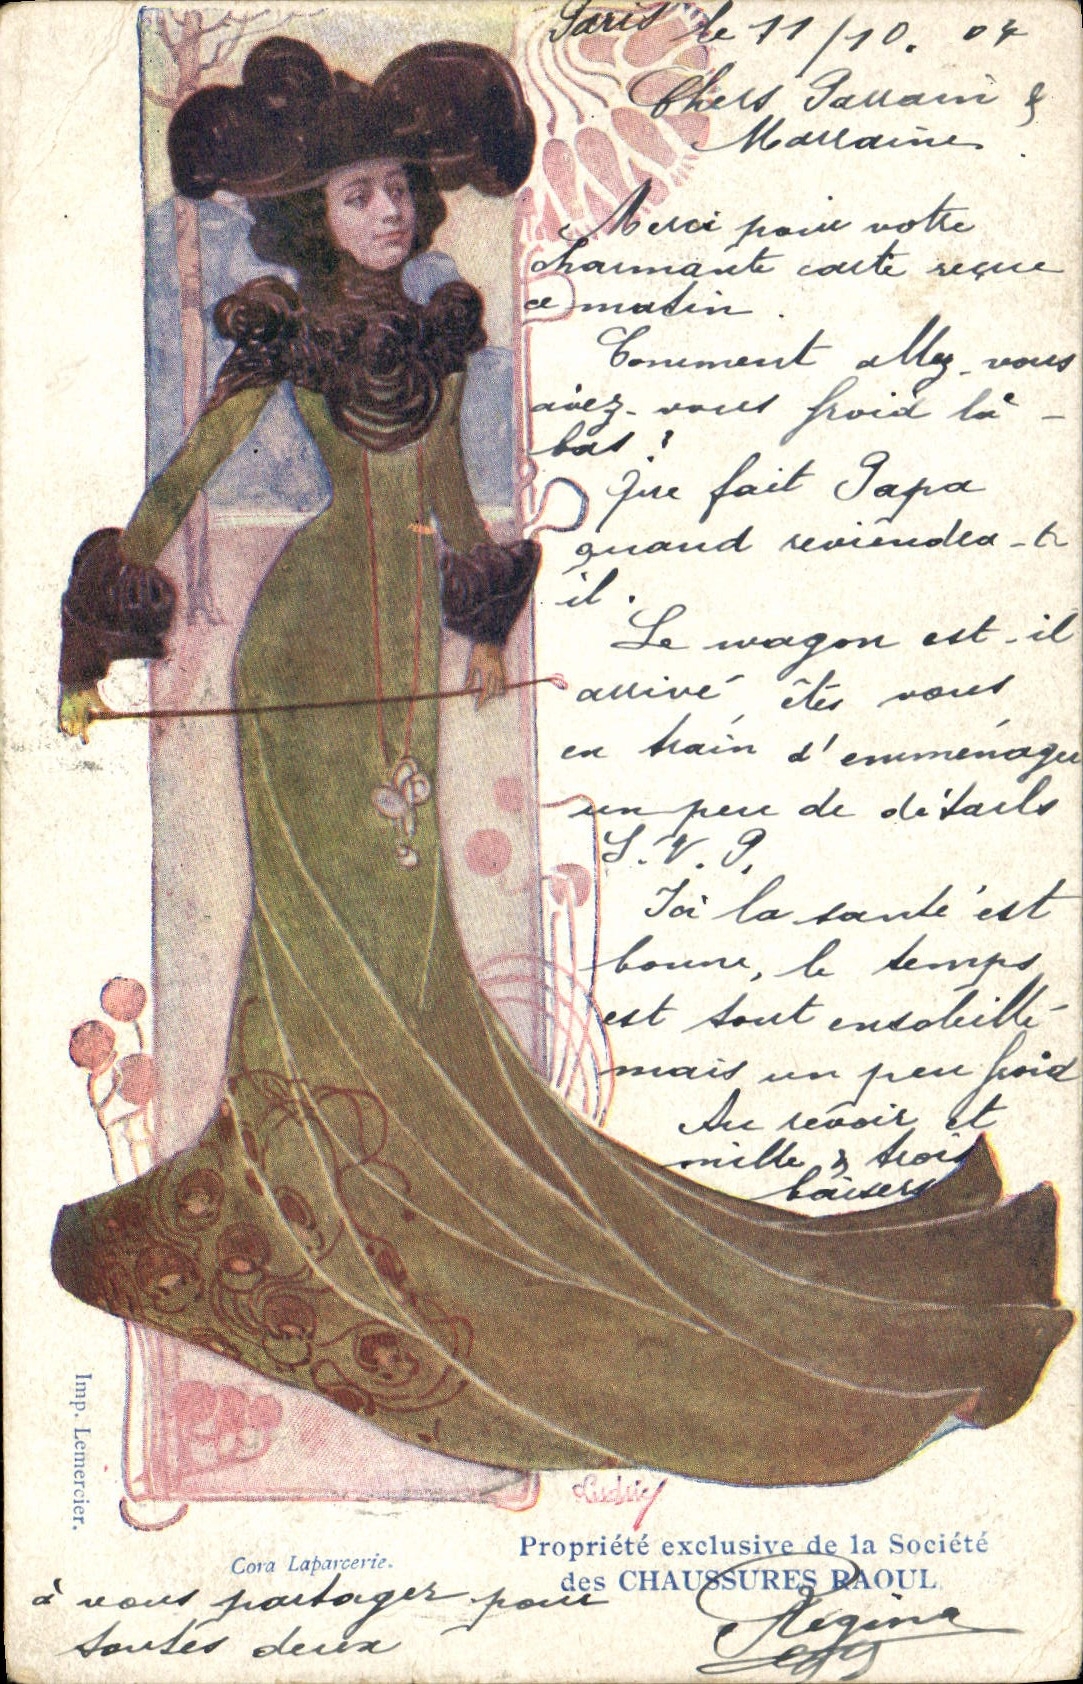 Paris le 11/10. 04
Chers Parrain &
Marraine
Merci pour votre
charmante carte reçue
ce matin.
Comment allez-vous
avez-vous froid là-
bas ?
Que fait Papa
quand reviendra-t-
il.
Le wagon est-il
arrivé êtes vous
en train d'emménager
un peu de détails
S.V.P.
Ici la santé est
bonne, le temps
est tout ensoleillé
mais un peu froid
Au revoir et
mille & trois
baisers
à vous partager pour
toutes deux
Régina
Imp. Lemercier.
Cora Laparcerie.
Propriété exclusive de la Société
des CHAUSSURES RAOUL